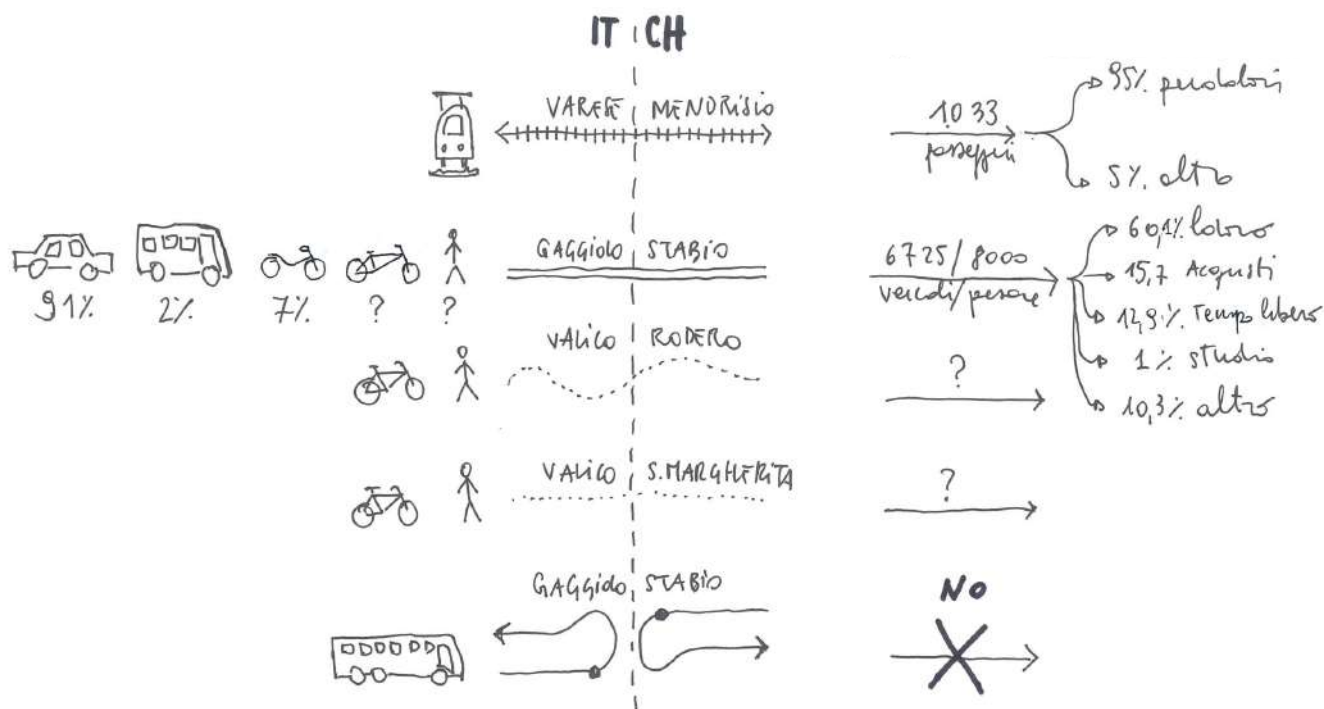 IT CH
VARESE MENDRISIO
1033
passeggeri
95% pendolari
5% altro
91%
2%
7%
?
?
GAGGIOLO STABIO
6725/8000
veicoli/persone
60,1% lavoro
15,7 Acquisti
12,9% Tempo libero
1% studio
10,3% altro
VALICO RODERO
?
VALICO S.MARGHERITA
?
GAGGIOLO STABIO
NO